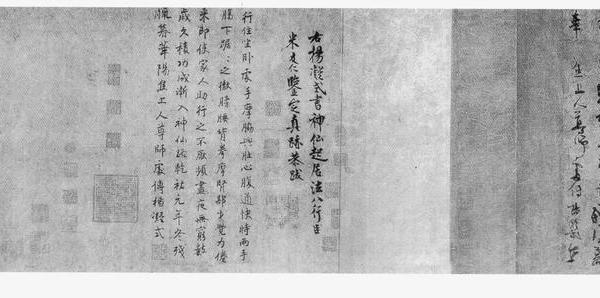 華 焦上人尊師處傳楊凝式
右楊凝式書神仙起居法八行臣
米友仁鑒定真跡恭跋
行住坐卧處手摩脇與肚心腹通快時兩手
腸下踞〻之徹膀腰背拳摩腎部才覺力倦
來即使家人助行之不厭頻晝夜無窮數
歲久積功成漸入神仙路乾祐元年冬殘
臘暮華陽焦上人尊師處傳楊凝式